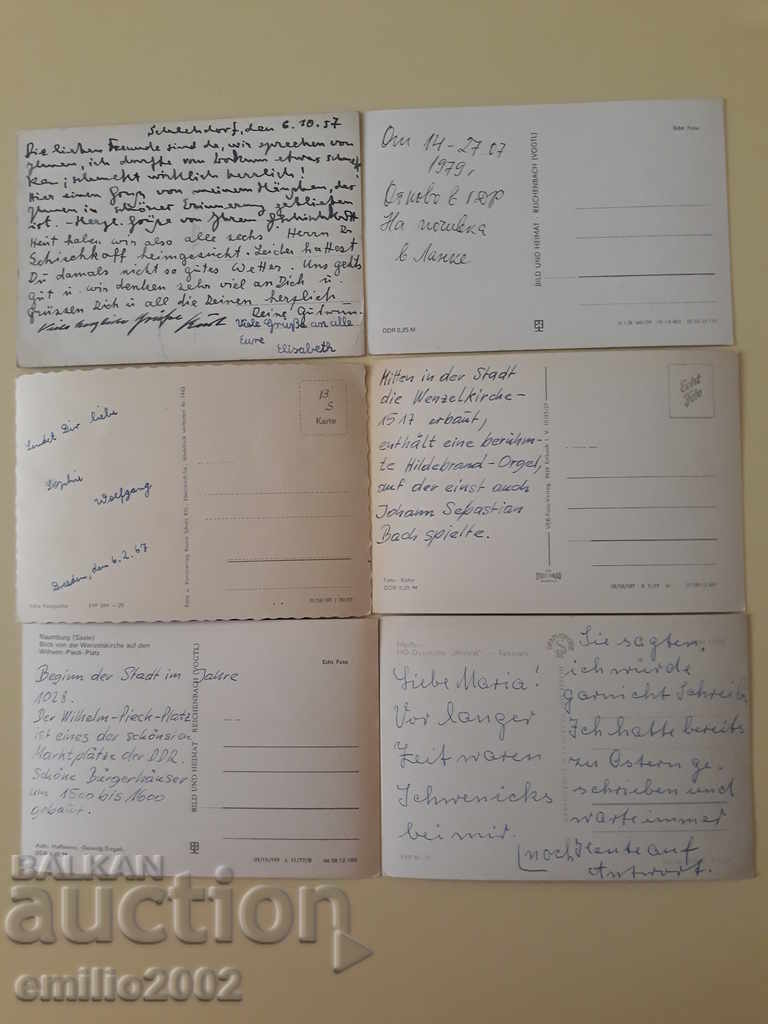 den 6.10.57
Die lieben Freunde sind da, wir sprechen von
Ihnen, ich durfte vom
schmeckt wirklich herrlich!
Hier einen Gruß von meinem
Ihnen in schöner Erinnerung geblieben
ist. - Herzl. Grüße von Ihrem
Heut haben wir also alle sechs Herrn Dr
Schischkoff heimgesucht. Leider hattest
Du damals nicht so gutes Wetter. Uns gehts
gut u. wir denken sehr viel an Dich u.
grüssen Dich u all die Deinen herzlich
Deine
Viele Grüße Kurt
Viele Grüße an alle
Eure
Elisabeth
От 14-27.07
1979 г
в ГДР
На почивка
в Ланке
Echt Foto
BILD UND HEIMAT REICHENBACH (VOGTL)
DDR 0,25 M
Dir liebe
Sophie
Wolfgang
Dresden, den 6.2.67
B
S
Karte
Mitten in der Stadt
die Wenzelkirche-
1517 erbaut,
enthält eine berühm-
te Hildebrand-Orgel,
auf der einst auch
Johann Sebastian
Bach spielte.
Echt
Foto
DDR 0,25 M
Naumburg (Saale)
Blick von der Wenzelskirche auf den
Wilhelm-Pieck-Platz
Echt Foto
Beginn der Stadt im Jahre
1028.
Der Wilhelm-Pieck-Platz
ist eines der schönsten
Marktplätze der DDR.
Schöne Bürgerhäuser
um 1500 bis 1600
gebaut.
BILD UND HEIMAT REICHENBACH (VOGTL)
Liebe Maria!
Vor langer
Zeit waren
Schwenicks
bei mir.
Sie sagten,
ich würde
garnicht schreib
Ich hatte bereits
zu Ostern ge-
schrieben und
warte immer
(noch heute auf
Antwort.
BALKAN
auction
emilio2002